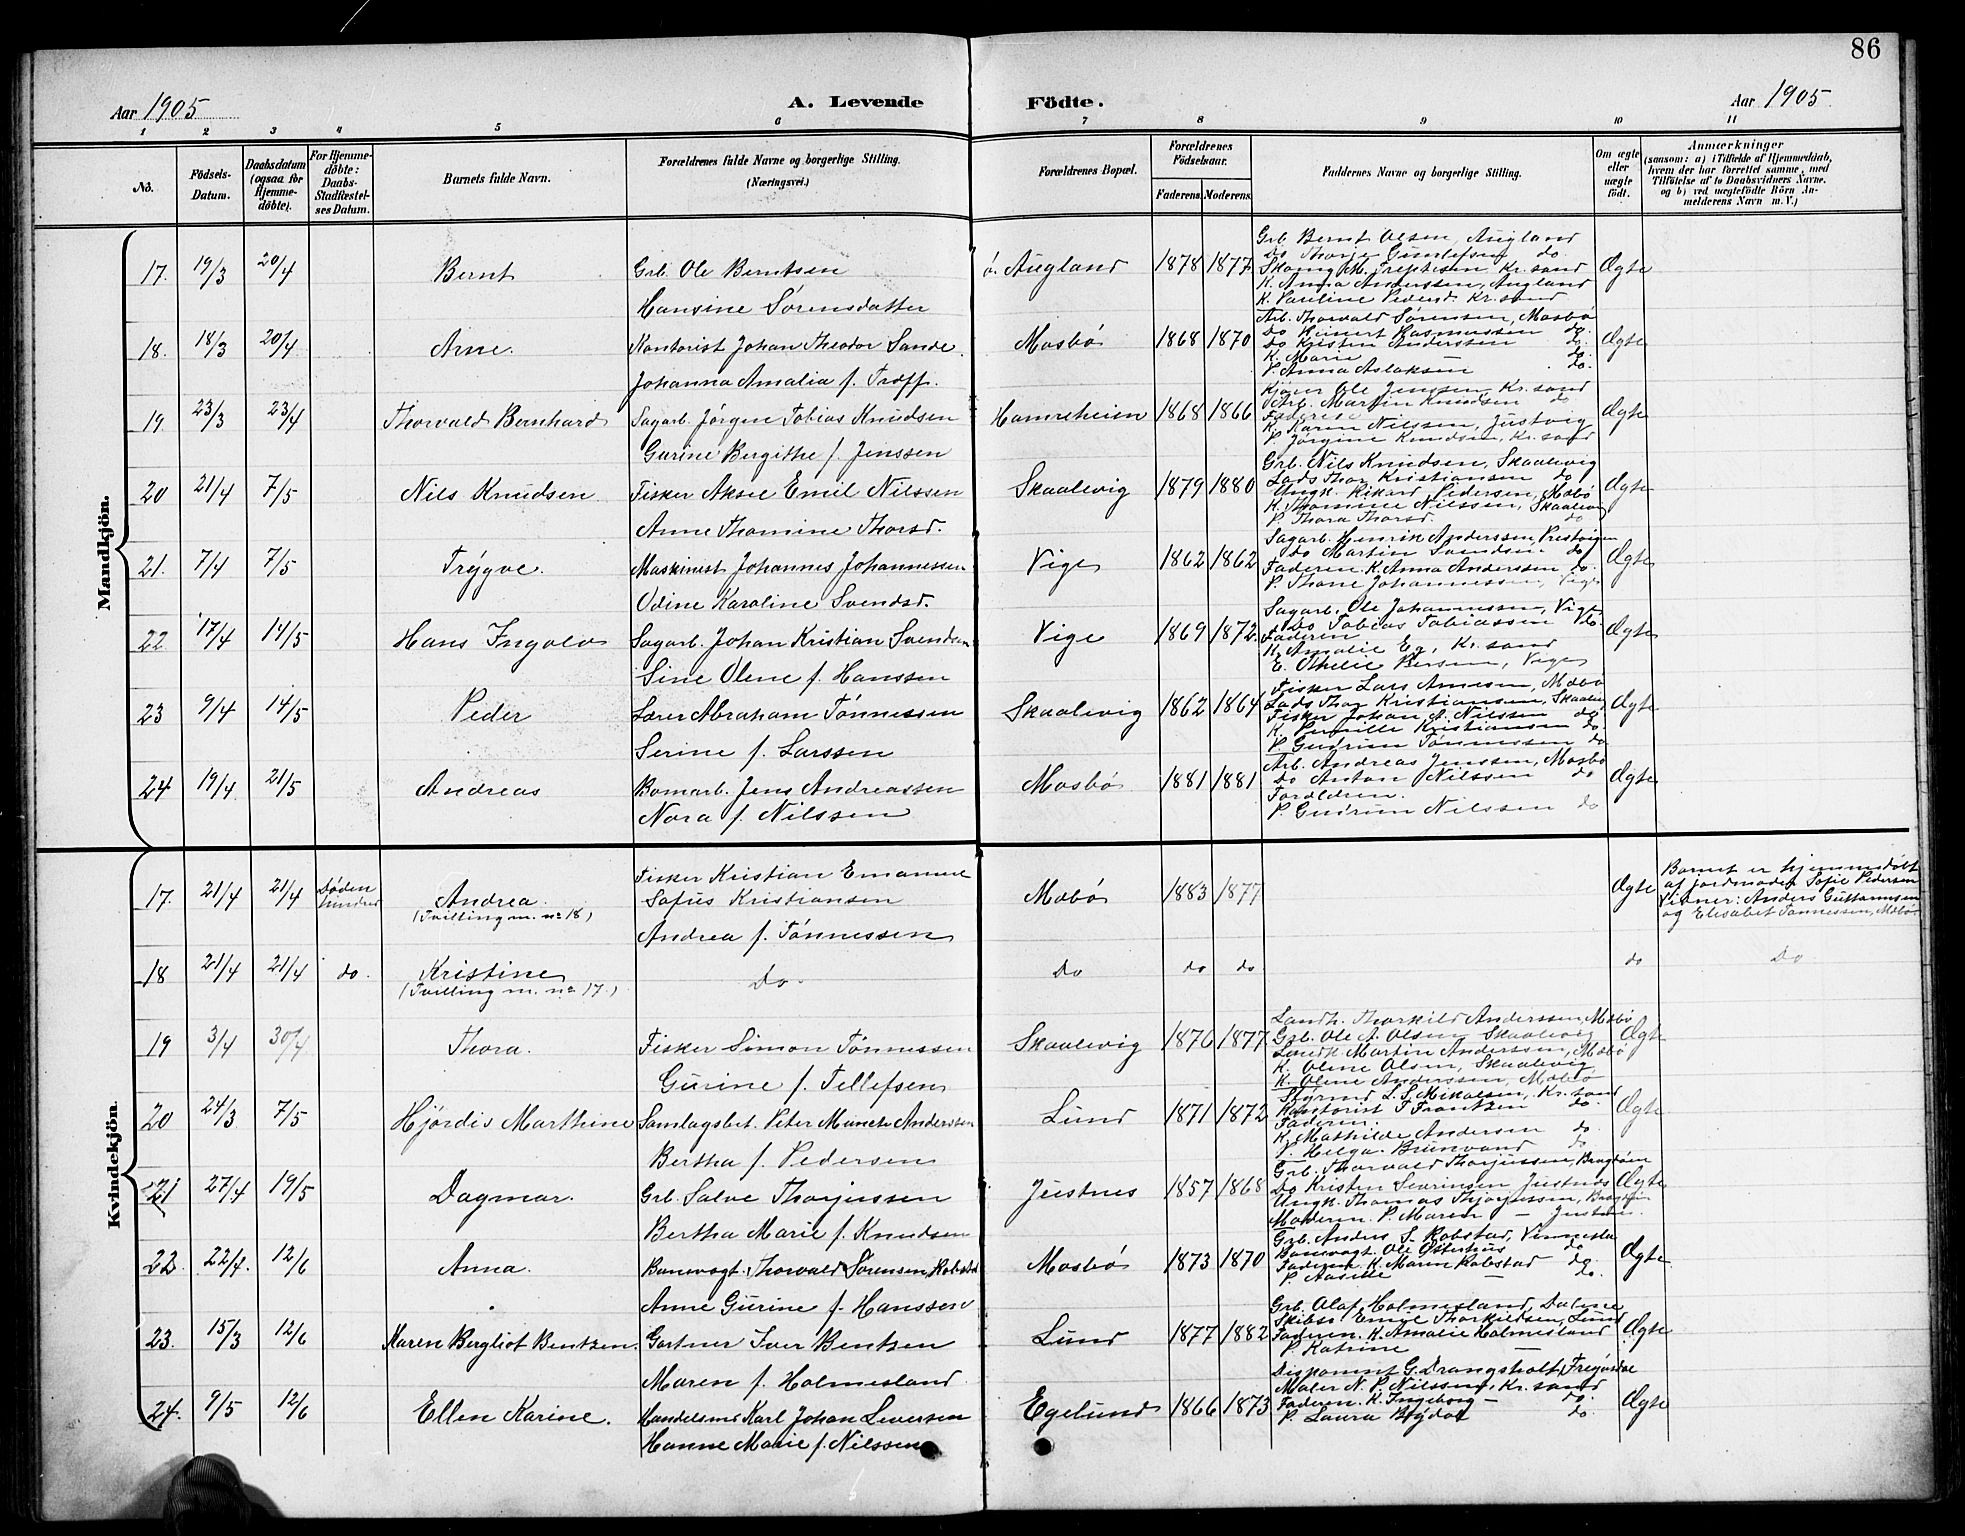 86
Aar 1905
A. Levende Födte.
Aar 1905
1 2 3 4 5 6 7 8 9 10 11
No.
Födsels-Datum.
Daabsdatum (ogsaa for Hjemme-döbte).
For Hjemme-döbte: Daabs-Stadfæstel-ses Datum.
Barnets fulde Navn.
Forældrenes fulde Navne og borgerlige Stilling.
(Næringsvei.)
Forældrenes Bopæl.
Forældrenes Födselsaar.
Faderens. Moderens.
Faddernes Navne og borgerlige Stilling.
Om ægte eller uægte födt.
Anmærkninger
(saasom: a) i Tilfælde af Hjemmedaab,
hvem der har forrettet samme, med
Tilföielse af to Daabsvidners Navne.
og b) ved uægtefödte Börn An-
melderens Navn m. V.)
Mandkjön.
17. 19/3 20/4 Bernt Grb. Ole Berntsen
Hansine Sørensdatter
ö. Augland 1878 1877
Grb Bernt Olsen, Augland
Do Thorje Gunlefsen do
K. Anna Anderssen, Augland
K. Pauline Peders. Kr. sand
Ægte
18. 18/3 20/4 Arne. Kontorist Johan Theodor Sande.
Johanna Amalia f. Træff.
Mosbö 1868 1870
Arb. Thorvald Sørensen, Mosbö
Do Reinert Rasmussen do.
Do Kristen Anderssen do.
K. Marie do.
P. Anna Aslaksen do.
Ægte
19. 23/3 23/4 Thorvald Bernhard Sagarb. Jörgen Tobias Knudsen
Gurine Bergithe f. Jenssen
Hamreheien 1868 1866
Ole Jenssen Kr. sand
Arb. Martin Knudsen do
Faderen
K. Karen Nilssen, Justvig
P. Jörgine Knudsen, Kr. sand
Ægte
20 21/4 7/5 Nils Knudsen Fisker Aksel Emil Nilssen
Anne Thomine Thorsd.
Skaalevig 1879 1880
Grb. Nils Knudsen, Skaalevig
Lods Thor Kristiansen do
Ungk. Rikard Pedersen, Mæbö
K. Thomine Nilssen, Skaalevig
P. Thora Thorsd. do
Ægte
21. 7/4 7/5 Trygve. Maskinist Johannes Johannessen
Odine Karoline Svendsd.
Vige 1862 1862
Sagarb. Henrik Anderssen, Prestvigen
do Martin Svendsen do
Faderen. K. Anna Anderssen do.
P. Thone Johannessen, Vige
Ægte
22 17/4 14/5 Hans Ingolv Sagarb. Johan Kristian Svendsen
Sine Olene f. Hanssen
Vige 1869 1872.
Sagarb. Ole Johannessen, Vige
Do Tobias Tobiassen do.
Faderen
K. Amalie Eg, Kr. sand
E. Othelie Bersen, Vige
Ægte
23 9/4 14/5 Peder Lærer Abraham Tönnessen
Serine f. Larssen
Skaalevig 1862 1864
Fisker Lars Arnesen, Mæbö
Lods Thor Kristiansen, Skaalevig
Fisker Johan A. Nilssen do
K. Pernille Kristiansen do.
P. Gudrun Tönnessen do
Ægte
24 19/4 21/5 Andreas Bomarb. Jens Andreassen
Nora f. Nilssen
Mosbö 1881 1881
Arb. Andreas Jenssen, Mosbö
Do Anton Nilssen do
Foreldren.
P. Gudrun Nilssen do
Ægte
Kvindekjön.
17. 21/4 21/4 Döden hindred Andrea.
(Tvilling m. no 18)
Fisker Kristian Emanuel
Sofus Kristiansen
Andrea f. Tönnessen
Mæbö 1883 1877
Ægte
Barnet er hjemmedöbt
af jordmoder Sofie Pedersen
Vidner: Anders Guttormsen
og Elisabet Tönnessen, Mæbö
18 21/4 21/4 do. Kristine
(Tvilling m. no 17.)
Do Do do do do Do
19 3/4 30/4 Thora. Fisker Simon Tönnessen
Gurine f. Tellefsen
Skaalevig 1876 1877
Landh. Thorkild Anderssen, Mæbö
Grb. Ole A. Olsen Skaalevig
Landh. Martin Anderssen, Mæbö
K. Olene Olsen, Skaalevig
K. Olene Anderssen, Mæbö
Ægte
20 24/3 7/5 Hjördis Marthine Samlagsbet. Peter Munch Anderssen
Bertha f. Pedersen
Lund 1871 1872
Styrmd L. S. Mikalsen, Kr. sand
Kontorist T. Frantzen do.
Faderen.
K. Mathilde Andersen do
P. Helga Brunvand do
Ægte
21 27/4 19/5 Dagmar. Grb. Salve Thorjussen
Bertha Marie f. Knudsen
Justnes 1857 1868
Grb. Thorvald Thorjussen,
Do Kristen Severinsen Justnes
Ungk. Thomas Thorjussen,
Moderen. P. Maren — Justnes.
Ægte
22. 22/4. 12/6 Anna. Banevogt. Thorvald Sörensen, Robstad
Anne Gurine f. Hanssen
Mosbö 1873 1870
Grb. Anders S. Robstad, Vennesla
Banevogt. Ole Osterhus do
Faderen K. Maren Robstad do.
P. Aaselle — do.
Ægte
23. 15/3 12/6 Karen Bergliot Bentzen. Gartner Iver Bentzen
Maren f. Holmesland
Lund 1877 1882
Grb. Olaf Holmesland, Dalene
Skibsr. Emil Thorkildsen, Lund
Faderen. K. Amalie Holmesland
P. Katrine —
Ægte
24. 9/5 12/6 Ellen Karine. Handelsmd Karl Johan Seversen
Hanne Marie f. Nilssen
Egelund 1866 1873
Disponent G. Drangsholt,
Maler N. P. Nilssen, Kr. sand
Faderen. K. Ingeborg — do.
P. Laura do.
Ægte